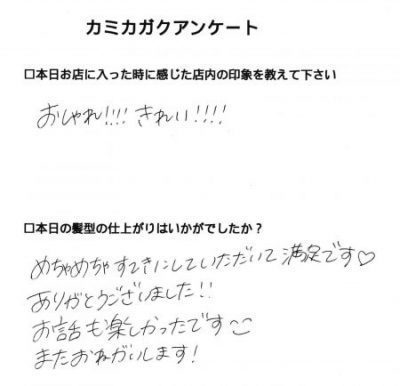 カミカガクアンケート
□本日お店に入った時に感じた店内の印象を教えて下さい
おしゃれ!!!! きれい!!!!
□本日の髪型の仕上がりはいかがでしたか？
めちゃめちゃすてきにしていただいて満足です♡
ありがとうございました!!
お話も楽しかったです
またおねがいします!